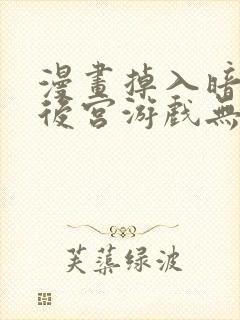 漫畫掉入暗
後宮游戲無
芙蕖绿波